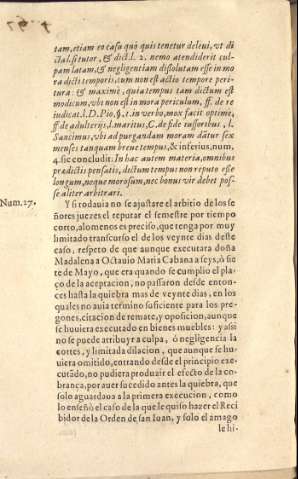 tam, etiam en casu quò quis tenetur de leui, vt di
cta l. si tutor, & dict. l. 2. nemo attendiderit cul-
pam latam, & negligentiam dissolutam esse in mo
ra dicti temporis, cum non est actio tempore peri-
tura: & maximè, quia tempus tam dictum est
modicum, vbi non est in mora periculum, ff. de re
iudicat. l. D. Pio, §. 1. in verbo, mox facit optimè,
ff. de adulterijs, l. maritus, C. de fide iussoribus, l.
Sancimus, vbi ad purgandum moram dātur sex
menses tanquam breue tempus, & inferius, num,
4. sic concludit: In hac autem materia, omnibus
prædictis pensatis, dictum tempus non reputo esse
longum, neque morosum, nec bonus vir debet pos-
se aliter arbitrari.
Num. 27.
Y si todauia no se ajustare el arbitio de los se
ñores juezes el reputar el semestre por tiempo
corto, alomenos es preciso, que tenga por muy
limitado transcurso el de los veynte dias deste
caso, respeto de que aunque executara doña
Madalena a Octauio Maria Cabana a seys, ò sie
te de Mayo, que era quando se cumplio el pla-
ço de la aceptacion, no passaron desde enton-
ces hasta la quiebra mas de veynte dias, en los
quales no auia termino suficiente para los pre-
gones, citacion de remate, y oposicion, aunque
se huuiera executado en bienes muebles: y assi
no se puede atribuyr a culpa, ò negligencia la
cortes, y limitada dilacion, que aunque se hu-
uiera omitido, entrando desde el principio exe-
cutādo, no pudiera produzir el efecto de la co-
brança, por auer sucedido antes la quiebra, que
solo aguardaua a la primera execucion, como
lo enseñò el caso de la que le quiso hazer el Reci
bidor de la Orden de san Iuan, y solo el amago
le hi-